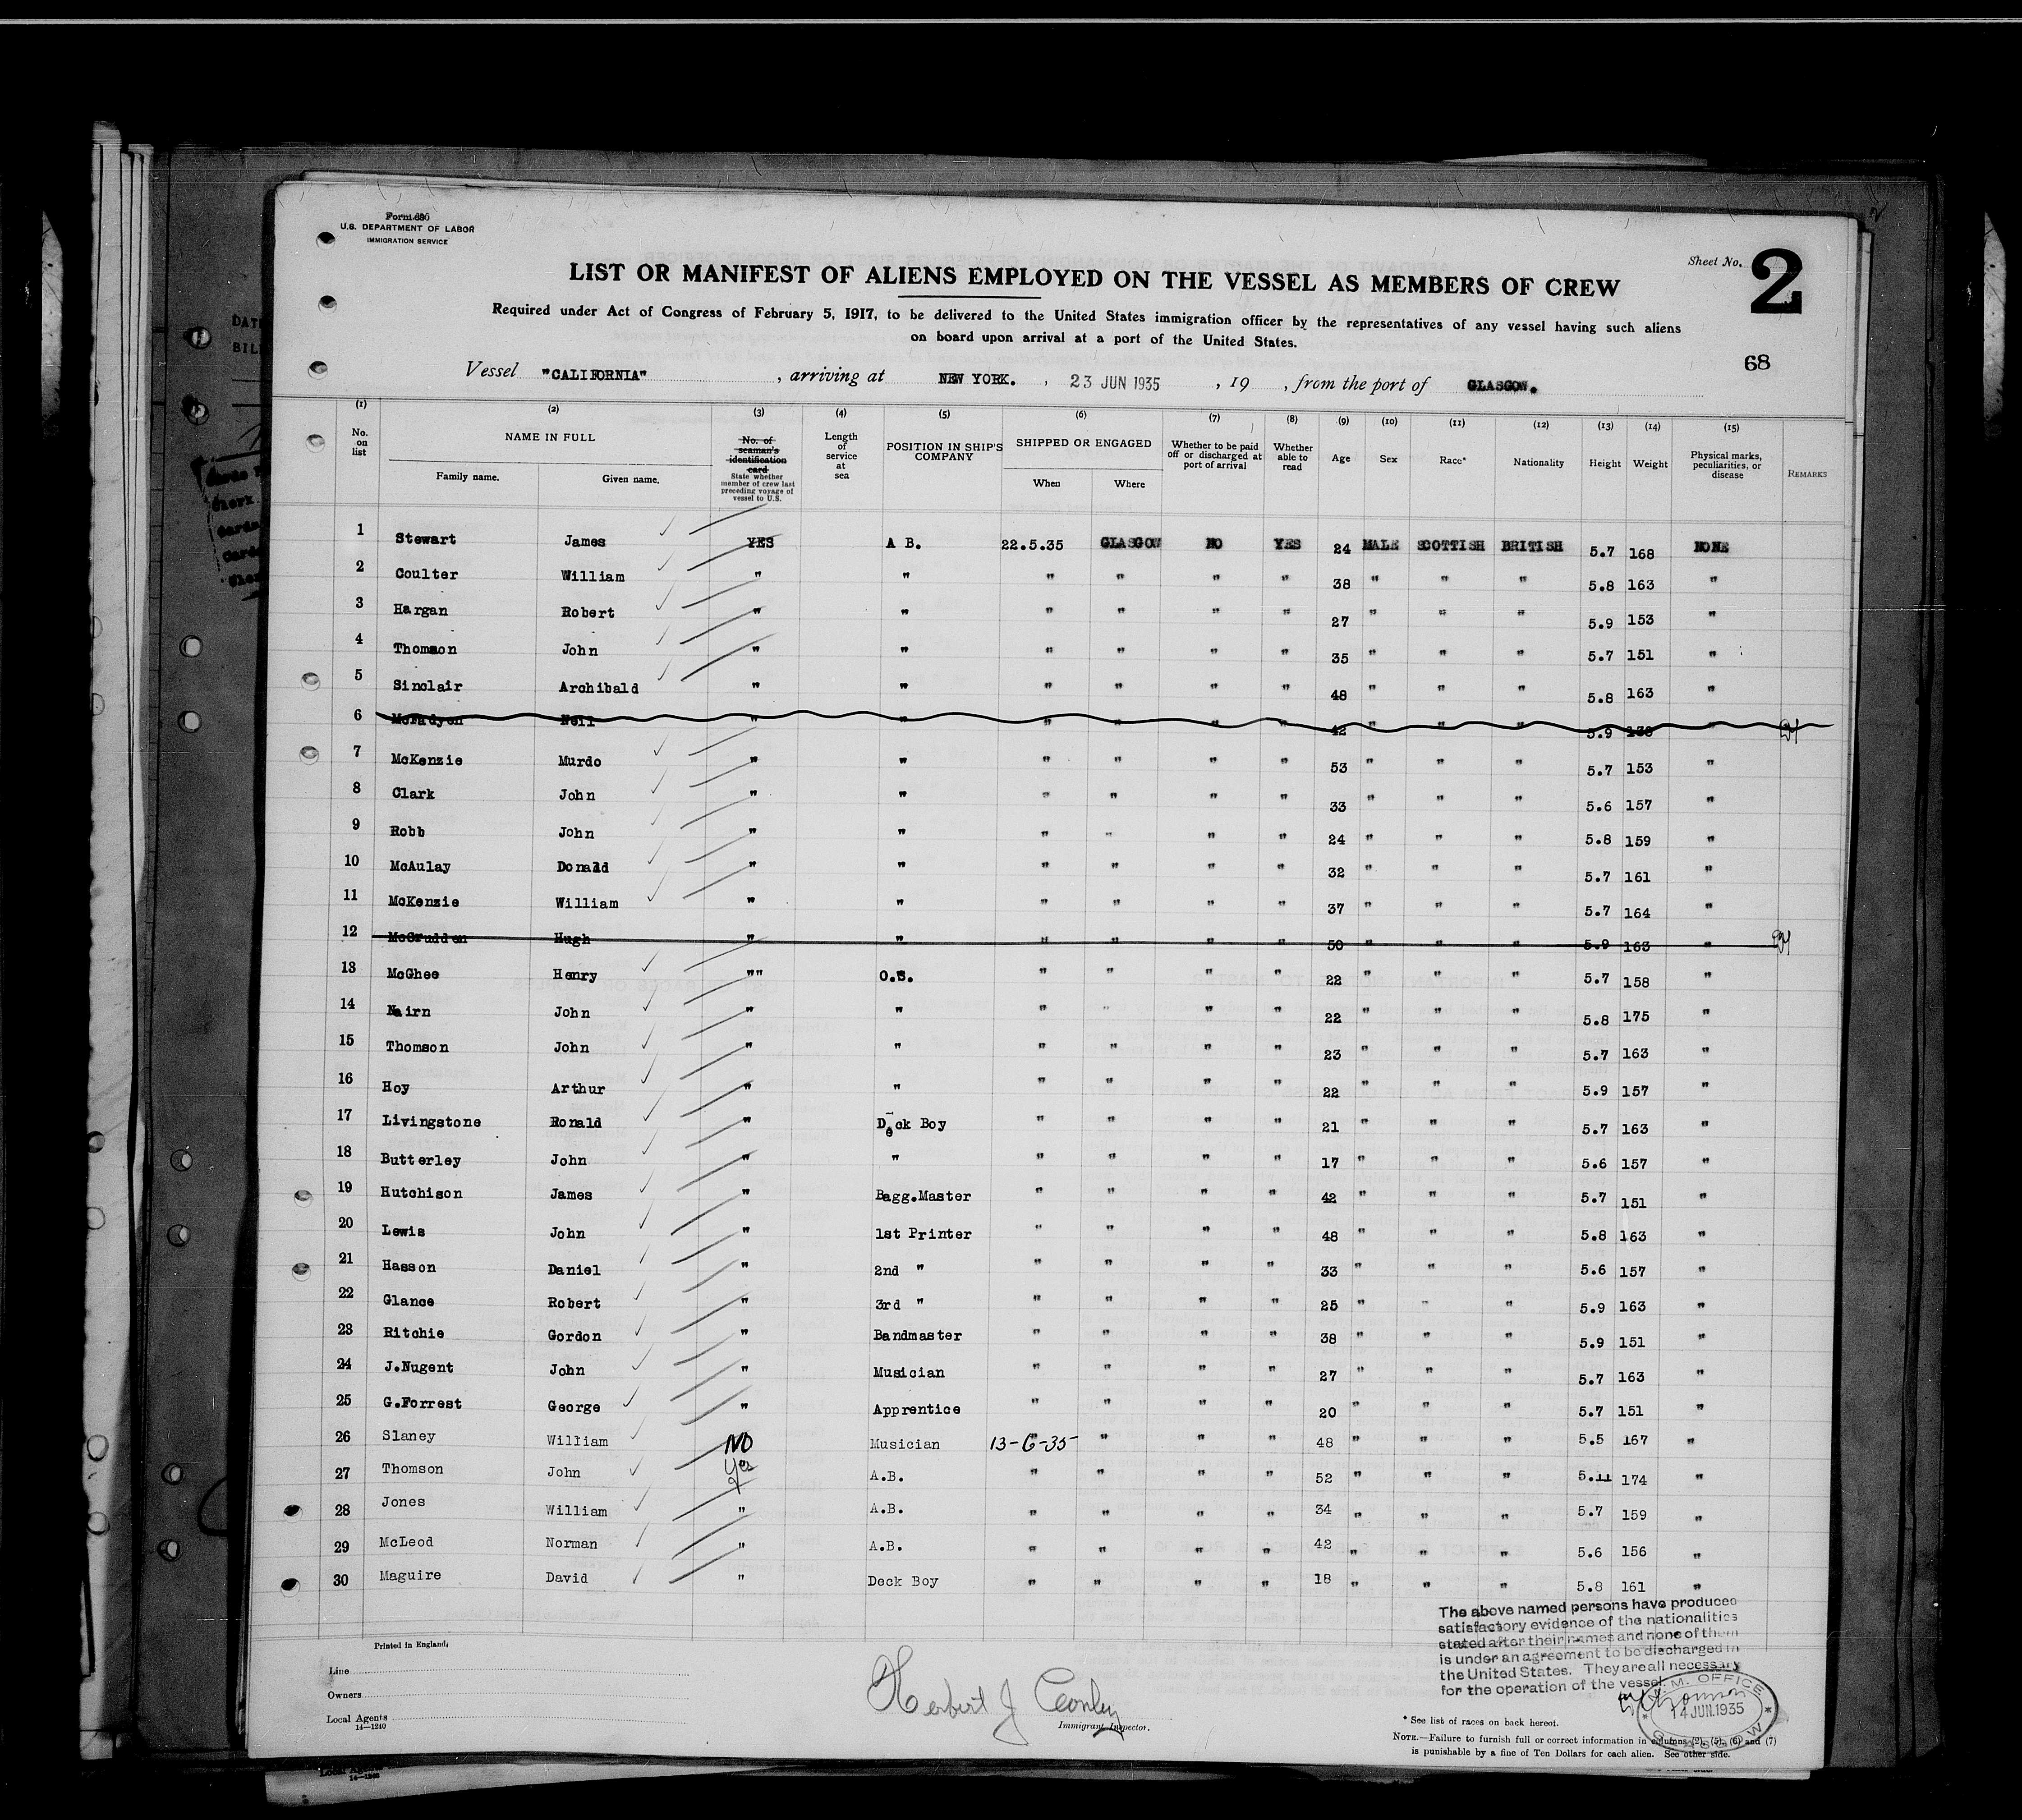 Form 680
U.S. DEPARTMENT OF LABOR
IMMIGRATION SERVICE
Sheet No. 2
LIST OR MANIFEST OF ALIENS EMPLOYED ON THE VESSEL AS MEMBERS OF CREW
Required under Act of Congress of February 5, 1917, to be delivered to the United States immigration officer by the representatives of any vessel having such aliens
on board upon arrival at a port of the United States.
68
Vessel "CALIFORNIA" , arriving at NEW YORK. , 23 JUN 1935 , 19 , from the port of GLASGOW.
(1) (2) (3) (4) (5) (6) (7) (8) (9) (10) (11) (12) (13) (14) (15)
No. on list NAME IN FULL Family name. Given name. No. of seaman's identification card State whether member of crew last preceding voyage of vessel to U.S. Length of service at sea POSITION IN SHIP'S COMPANY SHIPPED OR ENGAGED When Where Whether to be paid off or discharged at port of arrival Whether able to read Age Sex Race* Nationality Height Weight Physical marks, peculiarities, or disease REMARKS
1 Stewart James YES A B. 22.5.35 GLASGOW NO YES 24 MALE SCOTTISH BRITISH 5.7 168 NONE
2 Coulter William " " " " " " 38 " " " 5.8 163 "
3 Hargan Robert " " " " " " 27 " " " 5.9 153 "
4 Thomson John " " " " " " 35 " " " 5.7 151 "
5 Sinclair Archibald " " " " " " 48 " " " 5.8 163 "
6 McFadyen Neil " " " " " " 42 " " " 5.9 "
7 McKenzie Murdo " " " " " " 53 " " " 5.7 153 "
8 Clark John " " " " " " 33 " " " 5.6 157 "
9 Robb John " " " " " " 24 " " " 5.8 159 "
10 McAulay Donald " " " " " " 32 " " " 5.7 161 "
11 McKenzie William " " " " " " 37 " " " 5.7 164 "
12 McCrudden Hugh " " " " " " 50 " " " 5.9 163 "
13 McGhee Henry "" O.S. " " " " 22 " " " 5.7 158 "
14 Nairn John " " " " " " 22 " " " 5.8 175 "
15 Thomson John " " " " " " 23 " " " 5.7 163 "
16 Hoy Arthur " " " " " " 22 " " " 5.9 157 "
17 Livingstone Ronald " Deck Boy " " " " 21 " " " 5.7 163 "
18 Butterley John " " " " " " 17 " " " 5.6 157 "
19 Hutchison James " Bagg.Master " " " " 42 " " " 5.7 151 "
20 Lewis John " 1st Printer " " " " 48 " " " 5.8 163 "
21 Hasson Daniel " 2nd " " " " " 33 " " " 5.6 157 "
22 Glance Robert " 3rd " " " " " 25 " " " 5.9 163 "
23 Ritchie Gordon " Bandmaster " " " " 38 " " " 5.9 151 "
24 J.Nugent John " Musician " " " " 27 " " " 5.7 163 "
25 G.Forrest George " Apprentice " " " " 20 " " " 5.7 151 "
26 Slaney William NO Musician 13-6-35 " " " 48 " " " 5.5 167 "
27 Thomson John Yes A.B. " " " " 52 " " " 5.11 174 "
28 Jones William " A.B. " " " " 34 " " " 5.7 159 "
29 McLeod Norman " A.B. " " " " 42 " " " 5.6 156 "
30 Maguire David " Deck Boy " " " " 18 " " " 5.8 161 "
The above named persons have produced
satisfactory evidence of the nationalities
stated after their names and none of them
is under an agreement to be discharged in
the United States. They are all necessary
for the operation of the vessel.
Printed in England.
Line
Owners
Local Agents
14—1240
Immigrant Inspector.
14 JUN.1935
GLASGOW
* See list of races on back hereof.
NOTE.—Failure to furnish full or correct information in columns (2), (5), (6) and (7)
is punishable by a fine of Ten Dollars for each alien. See other side.